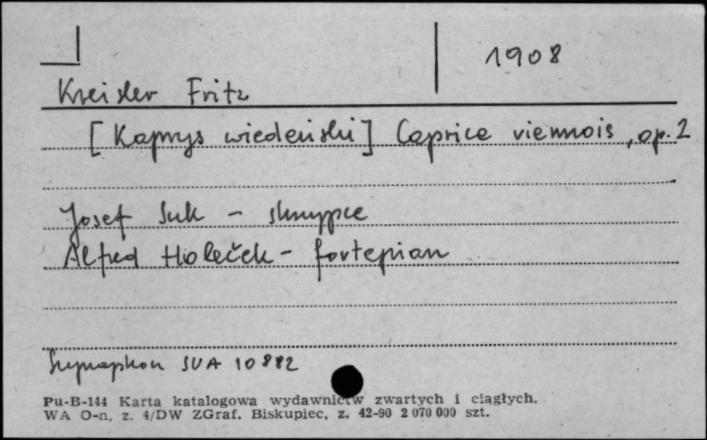 1908
Kreisler Fritz
[Kaprys wiedeński] Caprice viennois, op. 2
Josef Suk - skrzypce
Alfred Holeček - fortepian
Supraphon SUA 10882
Pu-B-144 Karta katalogowa wydawnictw zwartych i ciągłych.
WA O-n. z. 4/DW ZGraf. Biskupiec, z. 42-90 2 070 000 szt.